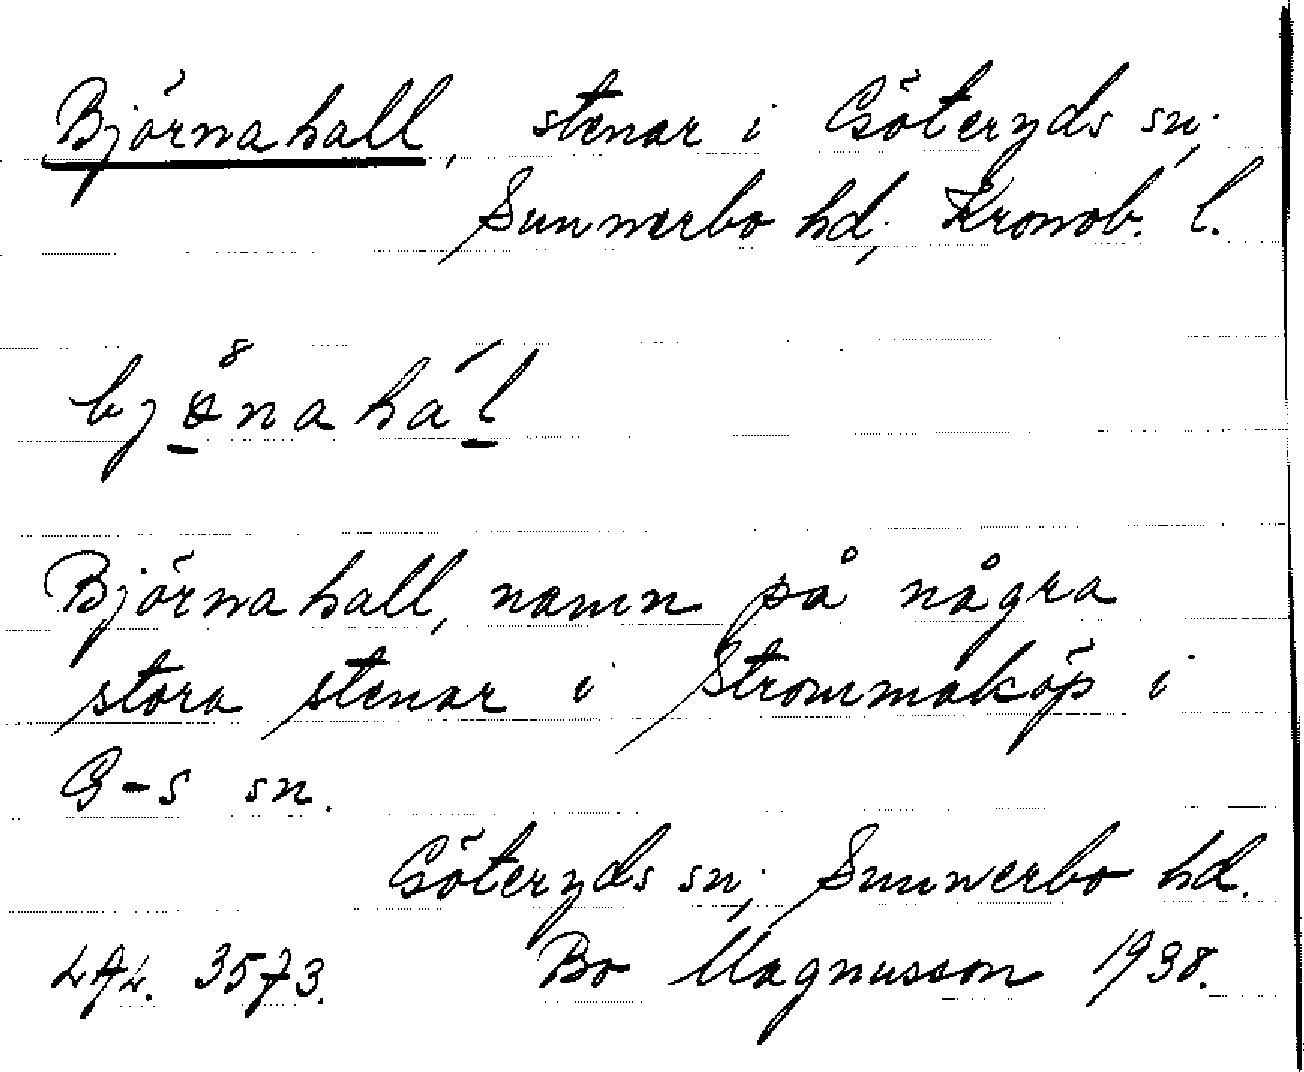 Björnahall, stenar i Göteryds sn.,
Sunnerbo hd., Kronob. l.
Björnahall, namn på några
stora stenar i Strommaköp i
G-s sn.
Göteryds sn., Sunnerbo hd.
LAL. 3573. Bo Magnusson 1938.